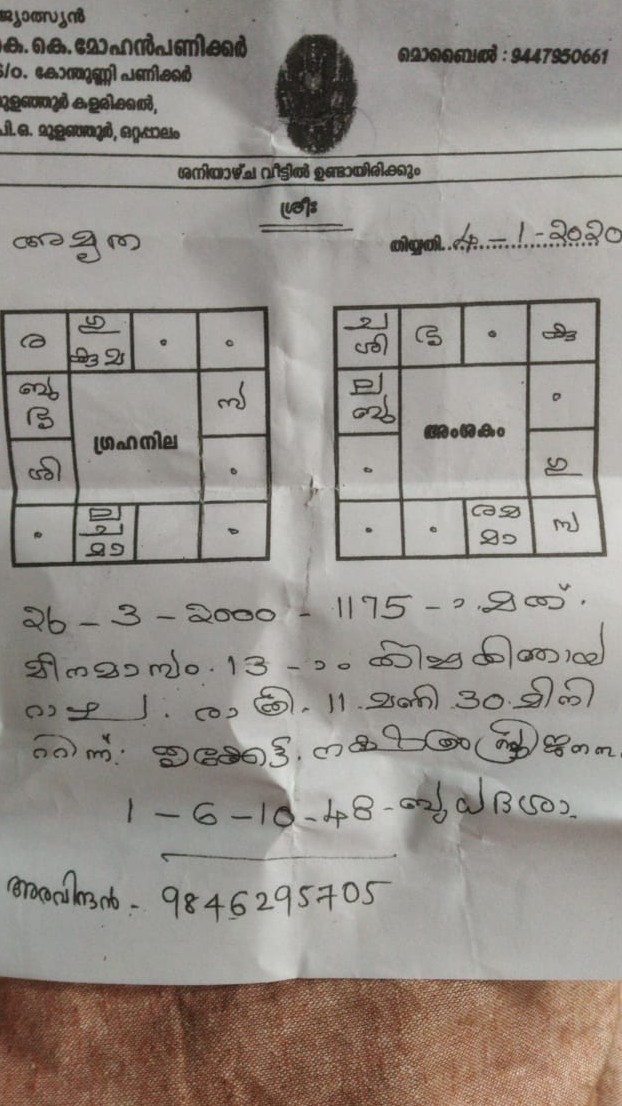 ജ്യോത്സ്യൻ
കെ.കെ.മോഹൻപണിക്കർ
S/o. കോന്തുണ്ണി പണിക്കർ
മുളഞ്ഞൂർ കളരിക്കൽ,
പി.ഒ. മുളഞ്ഞൂർ, ഒറ്റപ്പാലം
മൊബൈൽ : 9447950661
ശനിയാഴ്ച വീട്ടിൽ ഉണ്ടായിരിക്കും
ശ്രീഃ
അമൃത
തിയ്യതി. 4 - 1 - 2020
ര
ഗു
കു
.
.
ബു
ശി
ഗ്രഹനില
സ
.
.
ല
മാ
.
ശി
.
കു
ല
ബു
.
അംശകം
.
ഗു
.
.
മാ
സ
26 - 3 - 2000 - 1175
മീനമാസം. 13 -
രാത്രി. 11 മണി 30 മിനി
റ്റിന്
1 - 6 - 10 - 48 - ബുധദശാ
അരവിന്ദൻ - 9846295705